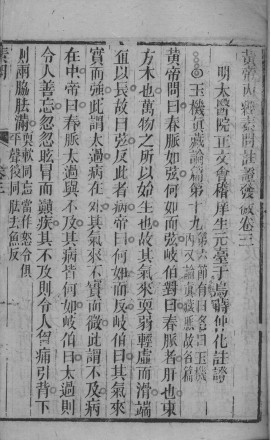 黃帝內經素問註證發微卷三
明太醫院正文會稽庠生元臺子馬蒔仲化註證
玉機真藏論篇第十九
第六節有曰名曰玉機
內又論真藏脈故名篇
黃帝問曰春脈如弦何如而弦岐伯對曰春脈者肝也東
方木也萬物之所以始生也故其氣來耎弱輕虛而滑端
直以長故曰弦反此者病帝曰何如而反岐伯曰其氣來
實而強此謂太過病在外其氣來不實而微此謂不及病
在中帝曰春脈太過與不及其病皆何如岐伯曰太過則
令人善忘忽忽眩冒而巔疾其不及則令人胷痛引背下
則兩脇胠滿
耎軟同忘當作怒令俱
平聲後同胠去魚反
素問
卷三